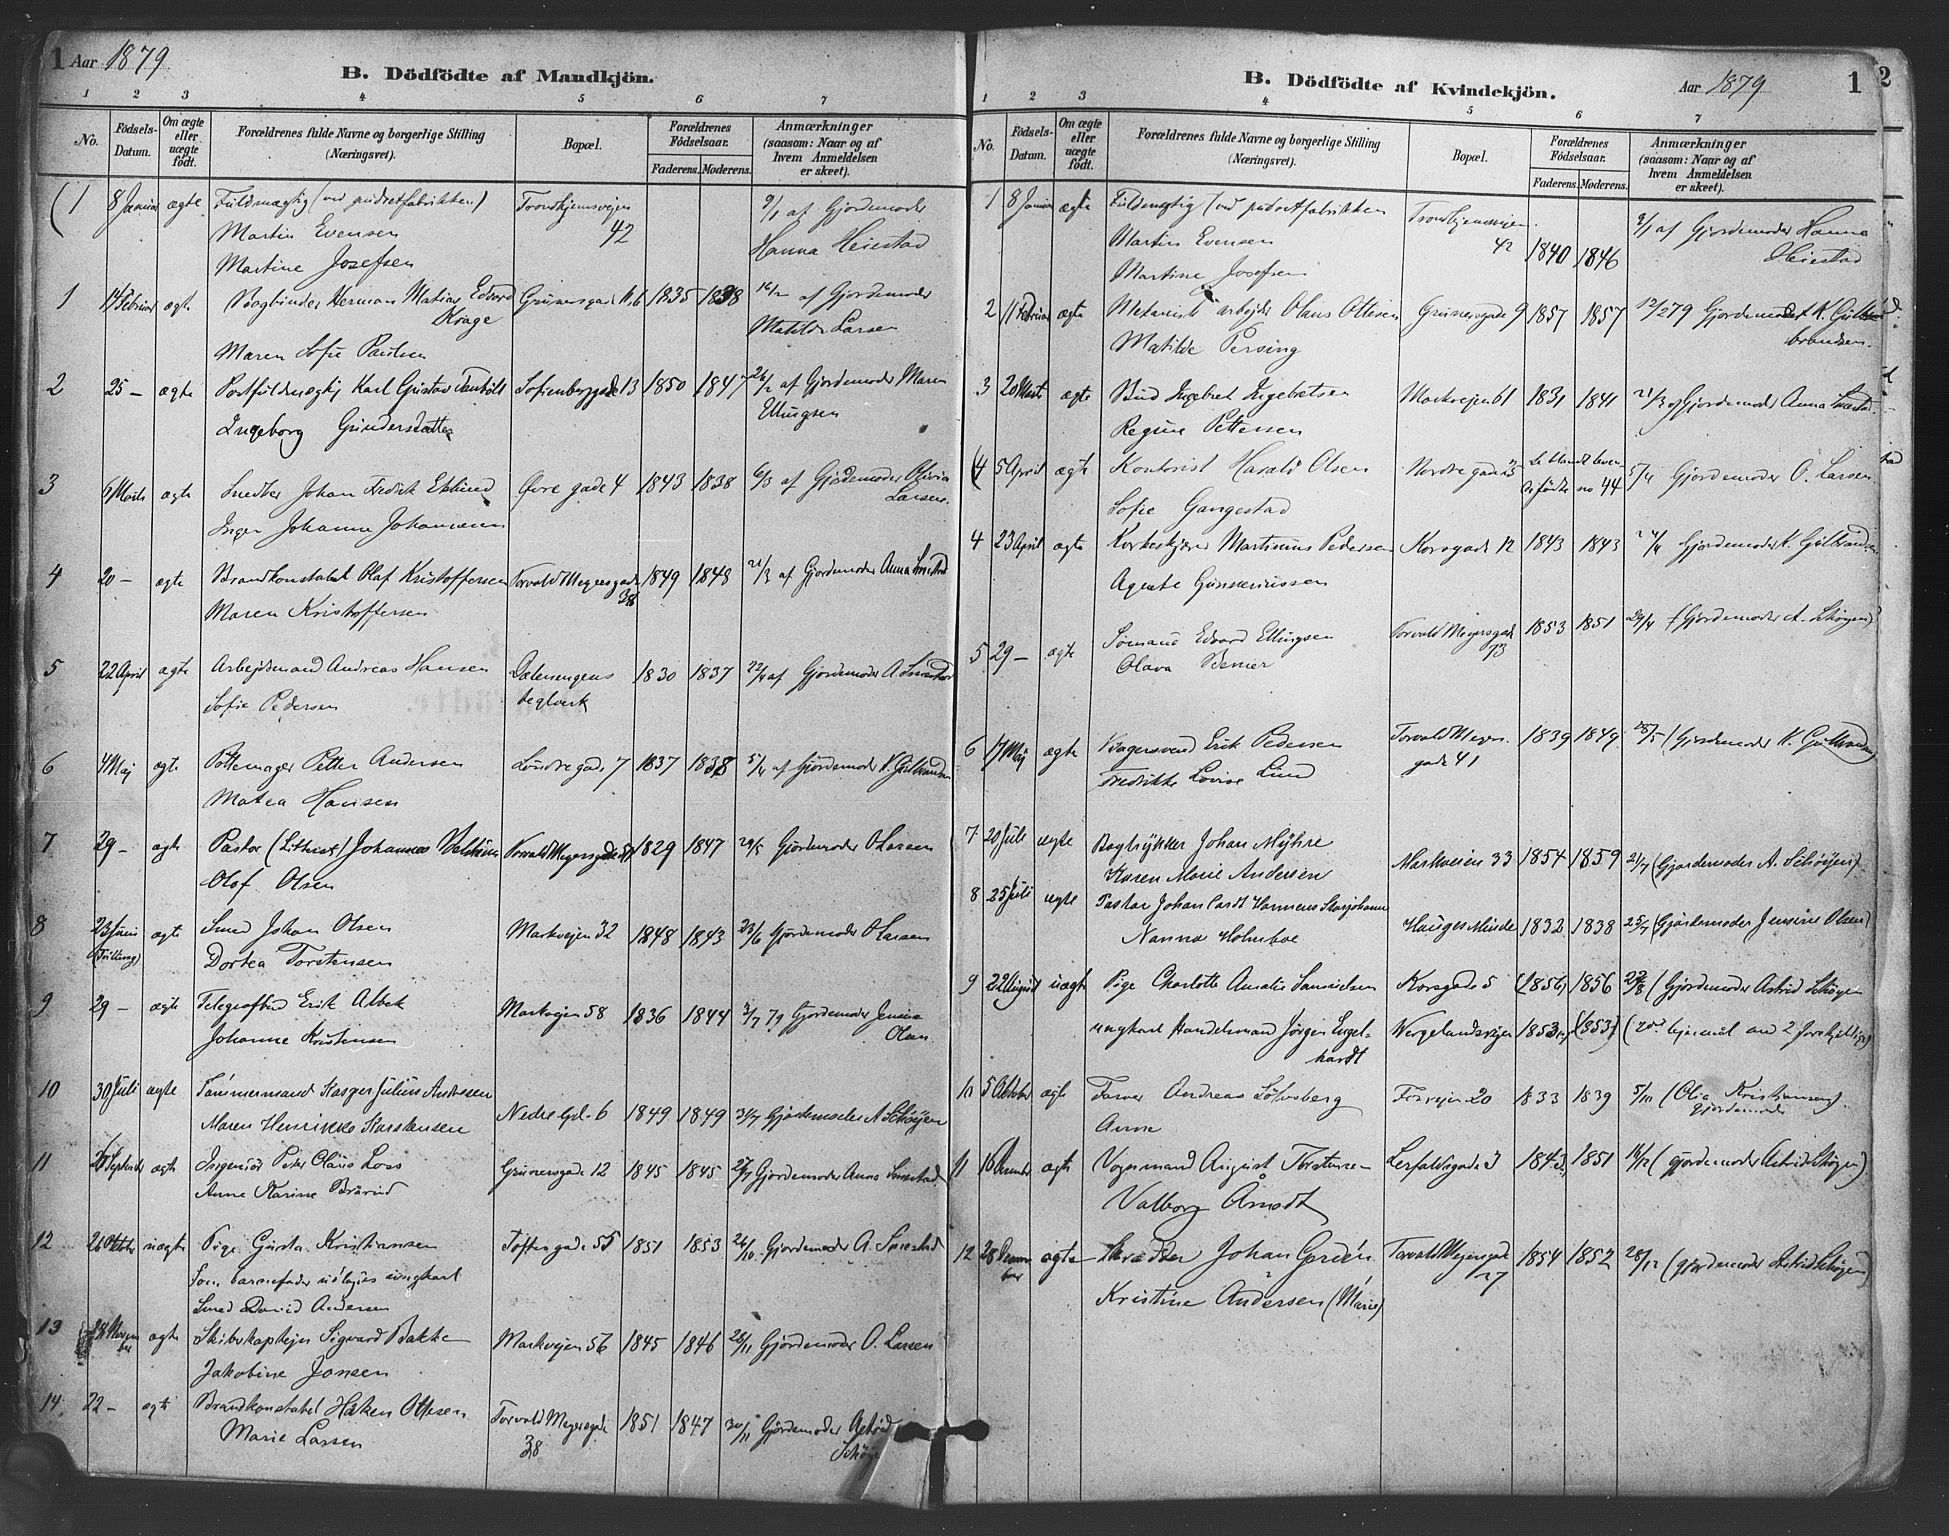 1 Aar 1879
B. Dödfödte af Mandkjön.
1 2 3 4 5 6 7
No. Födsels-Datum. Om ægte eller uægte födt. Forældrenes fulde Navne og borgerlige Stilling (Næringsvei). Bopæl. Forældrenes Födselsaar. Faderens. Moderens. Anmærkninger (saasom: Naar og af hvem Anmeldelsen er skeet).
(1 8 Januar ægte Fuldmægtig (ved pudretfabrikken) Trondhjemsvejen 9/1 af Gjordemoder
Martin Evensen 42 Hanna Heiestad
Martine Josefsen
1 14 Februar ægte Bogbinder Herman Matias Edvard Grünersgade 1835 1838 af Gjordemoder
Krage Matilde Larsen
Maren Sofie Paulsen
2 25 – ægte Postfuldmægtig Karl Gustav Sofienberggade 13 1850 1847 26/2 af Gjordemoder Maren
Ingeborg Gundersdatter Ellingsen
3 6 Marts ægte Snedker Johan Fredrik Eklund Øvre gade 4 1843 1838 6/3 af Gjordemoder Olivia
Inger Johanne Johansen Larsen.
4 20 – ægte Brandkonstabel Olaf Kristoffersen Torvald Meyersgade 1849 1848 21/3 af Gjordemoder Anna Smestad
Maren Kristoffersen 38
5 22 April ægte Arbejdsmand Andreas Hansen Dælenengens 1830 1837 22/4 af Gjordemoder A. Smestad
Sofie Pedersen teglverk
6 4 Maj ægte Pottemager Petter Andersen gade 7 1837 1838 5/ af Gjordemoder K. Gulbrandsen
Matea Hansen
7 29 – ægte Pastor Johannes Torvald Meyersgade 1829 1847 29/5 Gjordemoder O Larsen
Olof. Olsen
8 23 Juni ægte Smed Johan Olsen Markvejen 32 1848 1843 23/6 Gjordemoder O Larsen
(Tvilling) Dortea Torstensen
9 29 – ægte Telegrafbud Erik Albek Markvejen 58 1836 1844 3/7 79 Gjordemoder Jensine
Johanne Kristensen Olsen
10 30 Juli ægte Tømmermand Kasper Julius Andresen Nedre 6 1849 1849 31/7 Gjordemoder A Schøyen
Maren Henrikke Karstensen
11 September ægte Ingeniør Peter Claus Loss Grünersgade 12 1845 1845 27/ Gjordemoder Anna Smestad
Anne Karine
12 26 Oktober uægte Pige Gusta Kristiansen Toftesgade 55 1851 1853 26/10 Gjordemoder A. Smestad
Som barnefader udlagdes ungkarl
Smed David Andersen
13 28 November ægte Skibskaptejn Sigvard Bakke Markvejen 56 1845 1846 28/11 Gjordemoder O. Larsen
Jakobine Jonsen
14 22 – ægte Brandkonstabel Haken Ottesen Torvald Meyersgade 1851 1847 30/11 Gjordemoder Astrid
Marie Larsen 38 Schøyen
B. Dödfödte af Kvindekjön. Aar 1879 1
1 2 3 4 5 6 7
No. Födsels-Datum. Om ægte eller uægte födt. Forældrenes fulde Navne og borgerlige Stilling (Næringsvei). Bopæl. Forældrenes Födselsaar. Faderens. Moderens. Anmærkninger (saasom: Naar og af hvem Anmeldelsen er skeet).
1 8 Januar ægte Fuldmægtig (ved pudretfabrikken Trondhjemsvejen 9/1 af Gjordemoder Hanna
Martin Evensen 42 1840 1846 Heiestad
Martine Josefsen
2 11 Februar ægte Mekanisk arbejder Olaus Ottesen Grünersgade 9 1857 1857 12/2 79 Gjordemoder K. Gulbrandsen.
Matilde Persing
3 20 Marts ægte Bud Ingebret Ingebretsen Markvejen 61 1831 1841 21/3 af Gjordemoder Anna Smestad
Regine Pettersen
(4 5 April ægte Kontorist Harald Olsen Nordre gade Se blandt levendefødte no 44 5/4 Gjordemoder O. Larsen
Sofie Gangestad
4 23 April ægte Korkeskjærer Martinius Pedersen Korsgade 12 1843 1843 24/4 Gjordemoder K. Gulbrandsen
Agnete Gunneriussen
5 29 – ægte Sømand Edvard Ellingsen Torvald Meyersgade 1853 1851 29/4 (Gjordemoder A. Schøyen)
Olava Berner 73
6 17 Maj ægte Bagersvend Erik Pedersen Torvald Meyers 1839 1849 (Gjordemoder K. Gulbrandsen)
Fredrikke Lovise Lund gade 41
7 20 Juli ægte Bogtrykker Johan Myhre Markveien 33 1854 1859 21/7 (Gjordemoder A. Schøyen).
Karen Marie Andersen
8 25 Juli ægte Pastor Johan Cordt Harmens Storjohann Hauges Minde 1832 1838 25/7 (Gjordemoder Jensine Olsen)
Nanna Holmboe
9 22 August uægte Pige Charlotte Amalie Samuelsen Korsgade 5 (1856) 1856 23/8 (Gjordemoder Astrid Schøyen
ungkarl Handelsmand Jørgen Engelhardt Vergelandsvejen 1853 (1853) (2den gang med 2 forskjellige)
10 5 Oktober ægte Farver Andreas Løvsberg Fossvejen 20 1833 1839 5/10 (Olia Kristiansen).
Anne Gjordemoder
11 16 December ægte Vognmand August Torstensen 3 1843 1851 16/12 (gjordemoder Astrid Schøyen)
Valborg Arnodt
12 28 December ægte Skrædder Johan Gordén Torvald Meyersgade 1854 1852 28/12 (gjordemoder Astrid Schøyen)
Kristine Andersen (Marie) 27
2